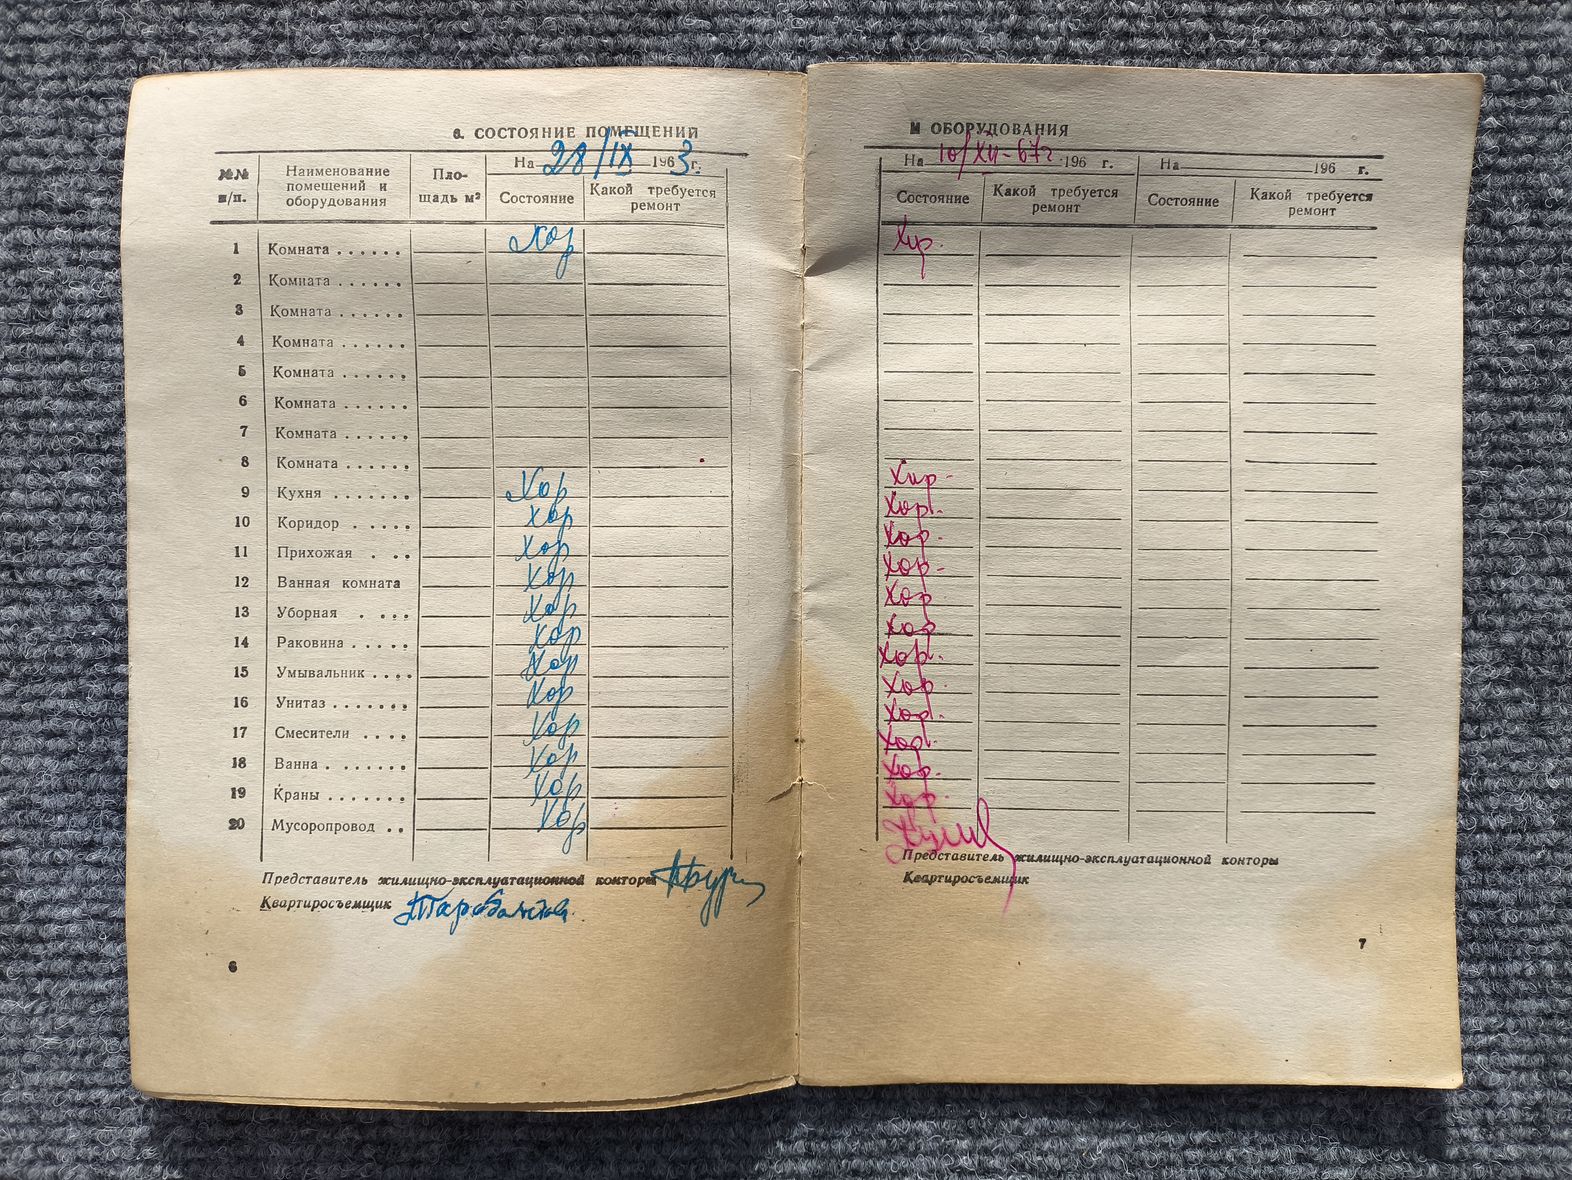 6. СОСТОЯНИЕ ПОМЕЩЕНИЙ
№№ п/п.
Наименование помещений и оборудования
Пло-
щадь м²
На 28/IX 1963 г.
Состояние
Какой требуется ремонт
1 Комната . . . . . . Хор
2 Комната . . . . . .
3 Комната . . . . . .
4 Комната . . . . . .
5 Комната . . . . . .
6 Комната . . . . . .
7 Комната . . . . . .
8 Комната . . . . . .
9 Кухня . . . . . . . Хор
10 Коридор . . . . . Хор
11 Прихожая . . . Хор
12 Ванная комната Хор
13 Уборная . . . . Хор
14 Раковина . . . . . Хор
15 Умывальник . . . . Хор
16 Унитаз . . . . . . . Хор
17 Смесители . . . . Хор
18 Ванна . . . . . . . Хор
19 Краны . . . . . . . Хор
20 Мусоропровод . . Хор
Представитель жилищно-эксплуатационной конторы
Квартиросъемщик
6
И ОБОРУДОВАНИЯ
На 10/XII-67г. 196 г.
Состояние
Какой требуется ремонт
На 196 г.
Состояние
Какой требуется ремонт
Хор.
Хор.
Хор.
Хор.
Хор.
Хор
Хор
Хор.
Хор.
Хор.
Хор.
Хор.
Хор.
Представитель жилищно-эксплуатационной конторы
Квартиросъемщик
7